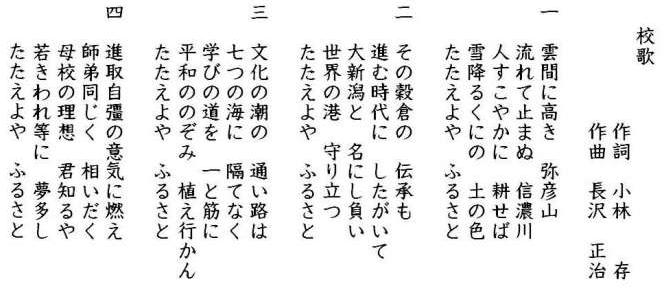 校歌
作詞　小林　存
作曲　長沢　正治
一　雲間に高き　弥彦山
流れて止まぬ　信濃川
人すこやかに　耕せば
雪降るくにの　土の色
たたえよや　ふるさと
二　その穀倉の　伝承も
進む時代に　したがいて
大新潟と　名にし負い
世界の港　守り立つ
たたえよや　ふるさと
三　文化の潮の　通い路は
七つの海に　隔てなく
学びの道を　一と筋に
平和ののぞみ　植え行かん
たたえよや　ふるさと
四　進取自彊の意気に燃え
師弟同じく　相いだく
母校の理想　君知るや
若きわれ等に　夢多し
たたえよや　ふるさと